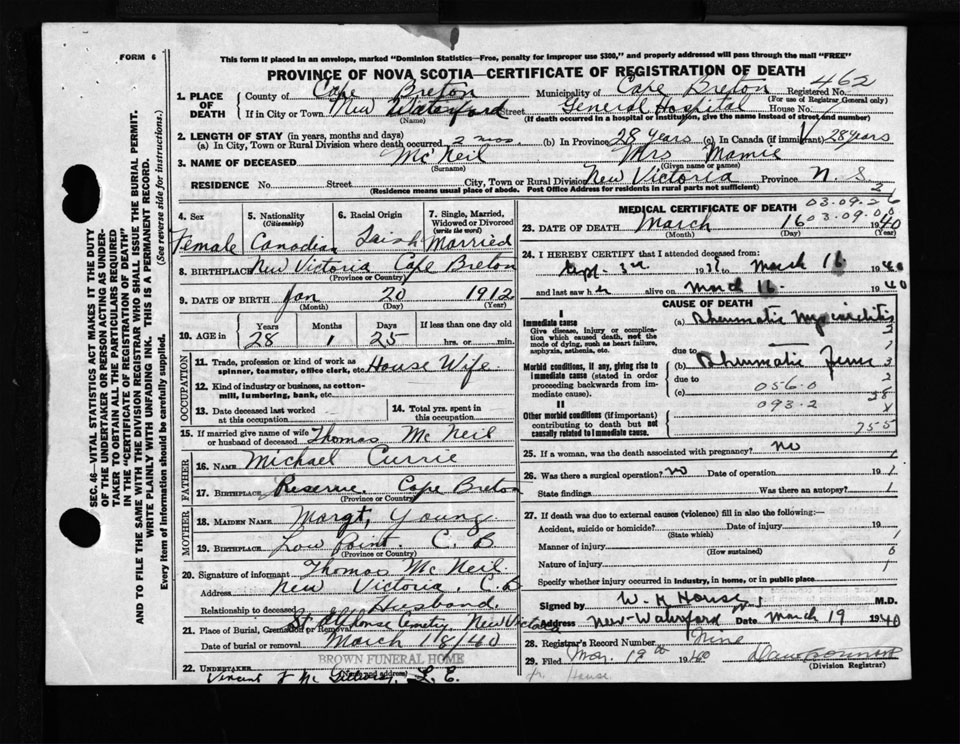 FORM 6
This form if placed in an envelope, marked "Dominion Statistics—Free, penalty for improper use $300," and properly addressed will pass through the mail "FREE"
PROVINCE OF NOVA SCOTIA—CERTIFICATE OF REGISTRATION OF DEATH
462
1. PLACE OF DEATH
County of Cape Breton Municipality of Cape Breton Registered No.
(For use of Registrar General only)
If in City or Town New Waterford Street General Hospital House No.
(Name) (If death occurred in a hospital or institution, give the name instead of street and number)
2. LENGTH OF STAY (in years, months and days)
(a) In City, Town or Rural Division where death occurred 2 mos. (b) In Province 28 years (c) In Canada (if immigrant) 28 years
3. NAME OF DECEASED McNeil Mrs Mamie
(Surname) (Given name or names)
RESIDENCE No. Street City, Town or Rural Division New Victoria Province N. S.
(Residence means usual place of abode. Post Office Address for residents in rural parts not sufficient)
SEC. 46—VITAL STATISTICS ACT MAKES IT THE DUTY
OF THE UNDERTAKER OR PERSON ACTING AS UNDER-
TAKER TO OBTAIN ALL THE PARTICULARS REQUIRED
IN THE "CERTIFICATE OF REGISTRATION OF DEATH"
AND TO FILE THE SAME WITH THE DIVISION REGISTRAR WHO SHALL ISSUE THE BURIAL PERMIT.
WRITE PLAINLY WITH UNFADING INK. THIS IS A PERMANENT RECORD.
Every item of information should be carefully supplied. (See reverse side for instructions.)
4. Sex
Female
5. Nationality
(Citizenship)
Canadian
6. Racial Origin
7. Single, Married,
Widowed or Divorced
(write the word)
Married
8. BIRTHPLACE New Victoria Cape Breton
(Province or Country)
9. DATE OF BIRTH Jan 20 1912
(Month) (Day) (Year)
10. AGE in Years Months Days If less than one day old
28 1 25 hrs. or min.
OCCUPATION
11. Trade, profession or kind of work as
spinner, teamster, office clerk, etc. House Wife
12. Kind of industry or business, as cotton-
mill, lumbering, bank, etc.
13. Date deceased last worked
at this occupation
14. Total yrs. spent in
this occupation
15. If married give name of wife
or husband of deceased Thomas McNeil
FATHER
16. NAME Michael Currie
17. BIRTHPLACE Reserve, Cape Breton
(Province or Country)
MOTHER
18. MAIDEN NAME Margt, Young
19. BIRTHPLACE Low Point. C. B
(Province or Country)
20. Signature of informant Thomas McNeil
Address New Victoria, C B
Relationship to deceased Husband
21. Place of Burial, Cremation or Removal St Alphonse Cemetry, New Victoria
Date of burial or removal March 18/40
BROWN FUNERAL HOME
22. UNDERTAKER
(Name and address)
Vincent
MEDICAL CERTIFICATE OF DEATH
2
03.09.26
03.09.00
23. DATE OF DEATH March 16 1940
(Month) (Day) (Year)
24. I HEREBY CERTIFY that I attended deceased from:
Sept. 3rd to March 16 1940
and last saw her alive on March 16 1940
CAUSE OF DEATH
I
Immediate cause
Give disease, injury or complica-
tion which caused death, not the
mode of dying, such as heart failure,
asphyxia, asthenia, etc.
(a) Rheumatic Myocarditis
due to
Morbid conditions, if any, giving rise to
immediate cause (stated in order
proceeding backwards from im-
mediate cause).
(b) Rheumatic Fever
due to
(c)
056.0
093.2
II
Other morbid conditions (if important)
contributing to death but not
causally related to immediate cause.
2
1
3
2
28
X
755
25. If a woman, was the death associated with pregnancy? no 1
26. Was there a surgical operation? no Date of operation 19 1
State findings Was there an autopsy? 1
27. If death was due to external causes (violence) fill in also the following:—
Accident, suicide or homicide? Date of injury 19
(State which) 1
Manner of injury 6
(How sustained)
Nature of injury 1
Specify whether injury occurred in industry, in home, or in public place
Signed by W. H. House M.D.
Address New-Waterford Date March 19 1940
28. Registrar's Record Number Nine
29. Filed 19th 1940
(Division Registrar)
House